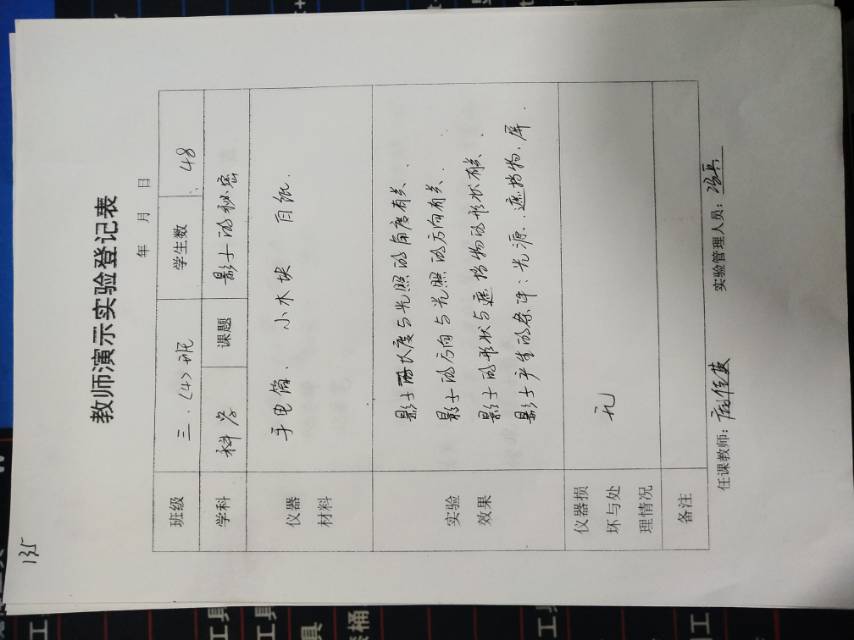 135
教师演示实验登记表
年 月 日
班级 三.(4)班 学生数 48
学科 科学 课题 影子的秘密
仪器材料 手电筒. 小木块 白纸.
实验效果 影子的长度与光照的角度有关.
影子的方向与光照的方向有关.
影子的形状与遮挡物的形状有关.
影子产生的条件:光源.遮挡物.屏.
仪器损坏与处理情况 无
备注
任课教师: 实验管理人员:
工具